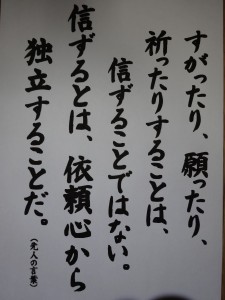 すがったり、願ったり、
祈ったりすることは、
信ずることではない。
信ずるとは、依頼心から
独立することだ。
(先人の言葉)